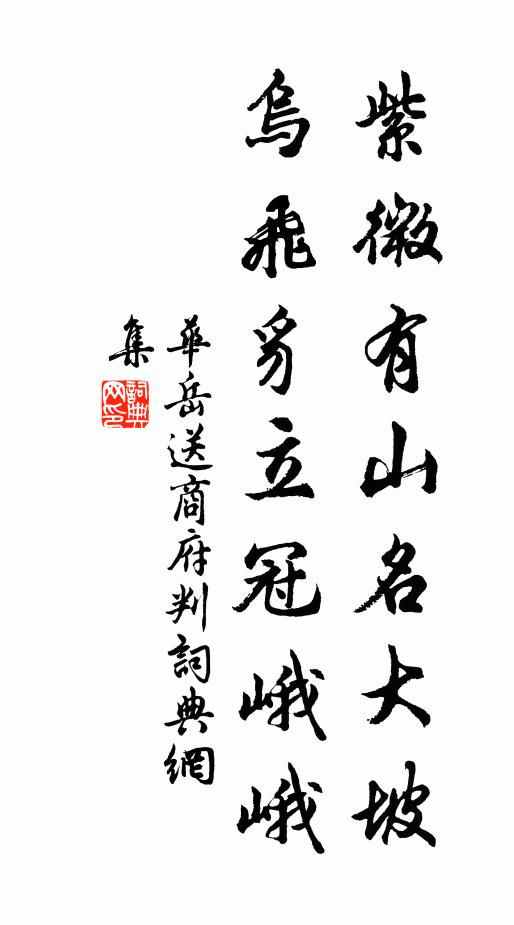 紫微有山名大坡
烏飛豸立冠峨峨
華岳送商府判詞典網
集
詞典網印